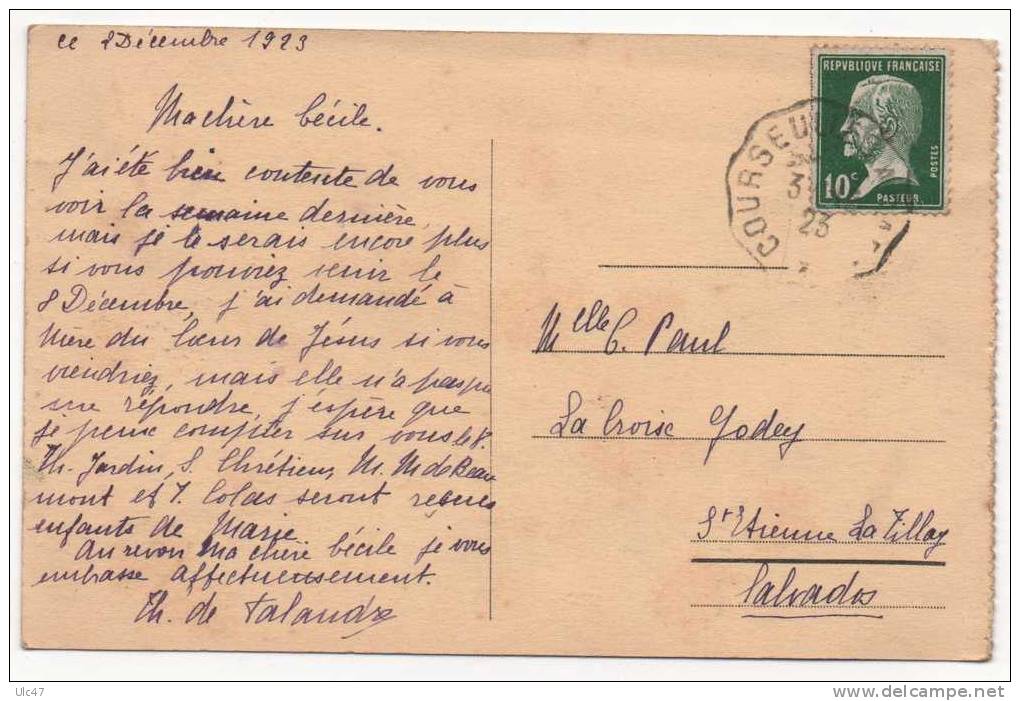 ce 2 Décembre 1923
Ma chère Cécile.
J'ai été bien contente de vous
voir la semaine dernière,
mais je le serais encore plus
si vous pouviez venir le
8 Décembre, j'ai demandé à
Mère du Cœur de Jésus si vous
viendriez, mais elle n'a pas pu
me répondre, j'espère que
je peux compter sur vous le 8.
Th. Jardin, S. Chrétien, M. M de Beau
mont et Y. Colas seront reçues
enfants de Marie
Au revoir Ma chère Cécile je vous
embrasse affectueusement.
Th. de Talandre
REPVBLIQUE FRANÇAISE
10c
PASTEUR
POSTES
COURSEULLES
3
23
Melle C. Paul
La Croise Godey
St Etienne La Tillay
Calvados
Ulc47
delcampe.net